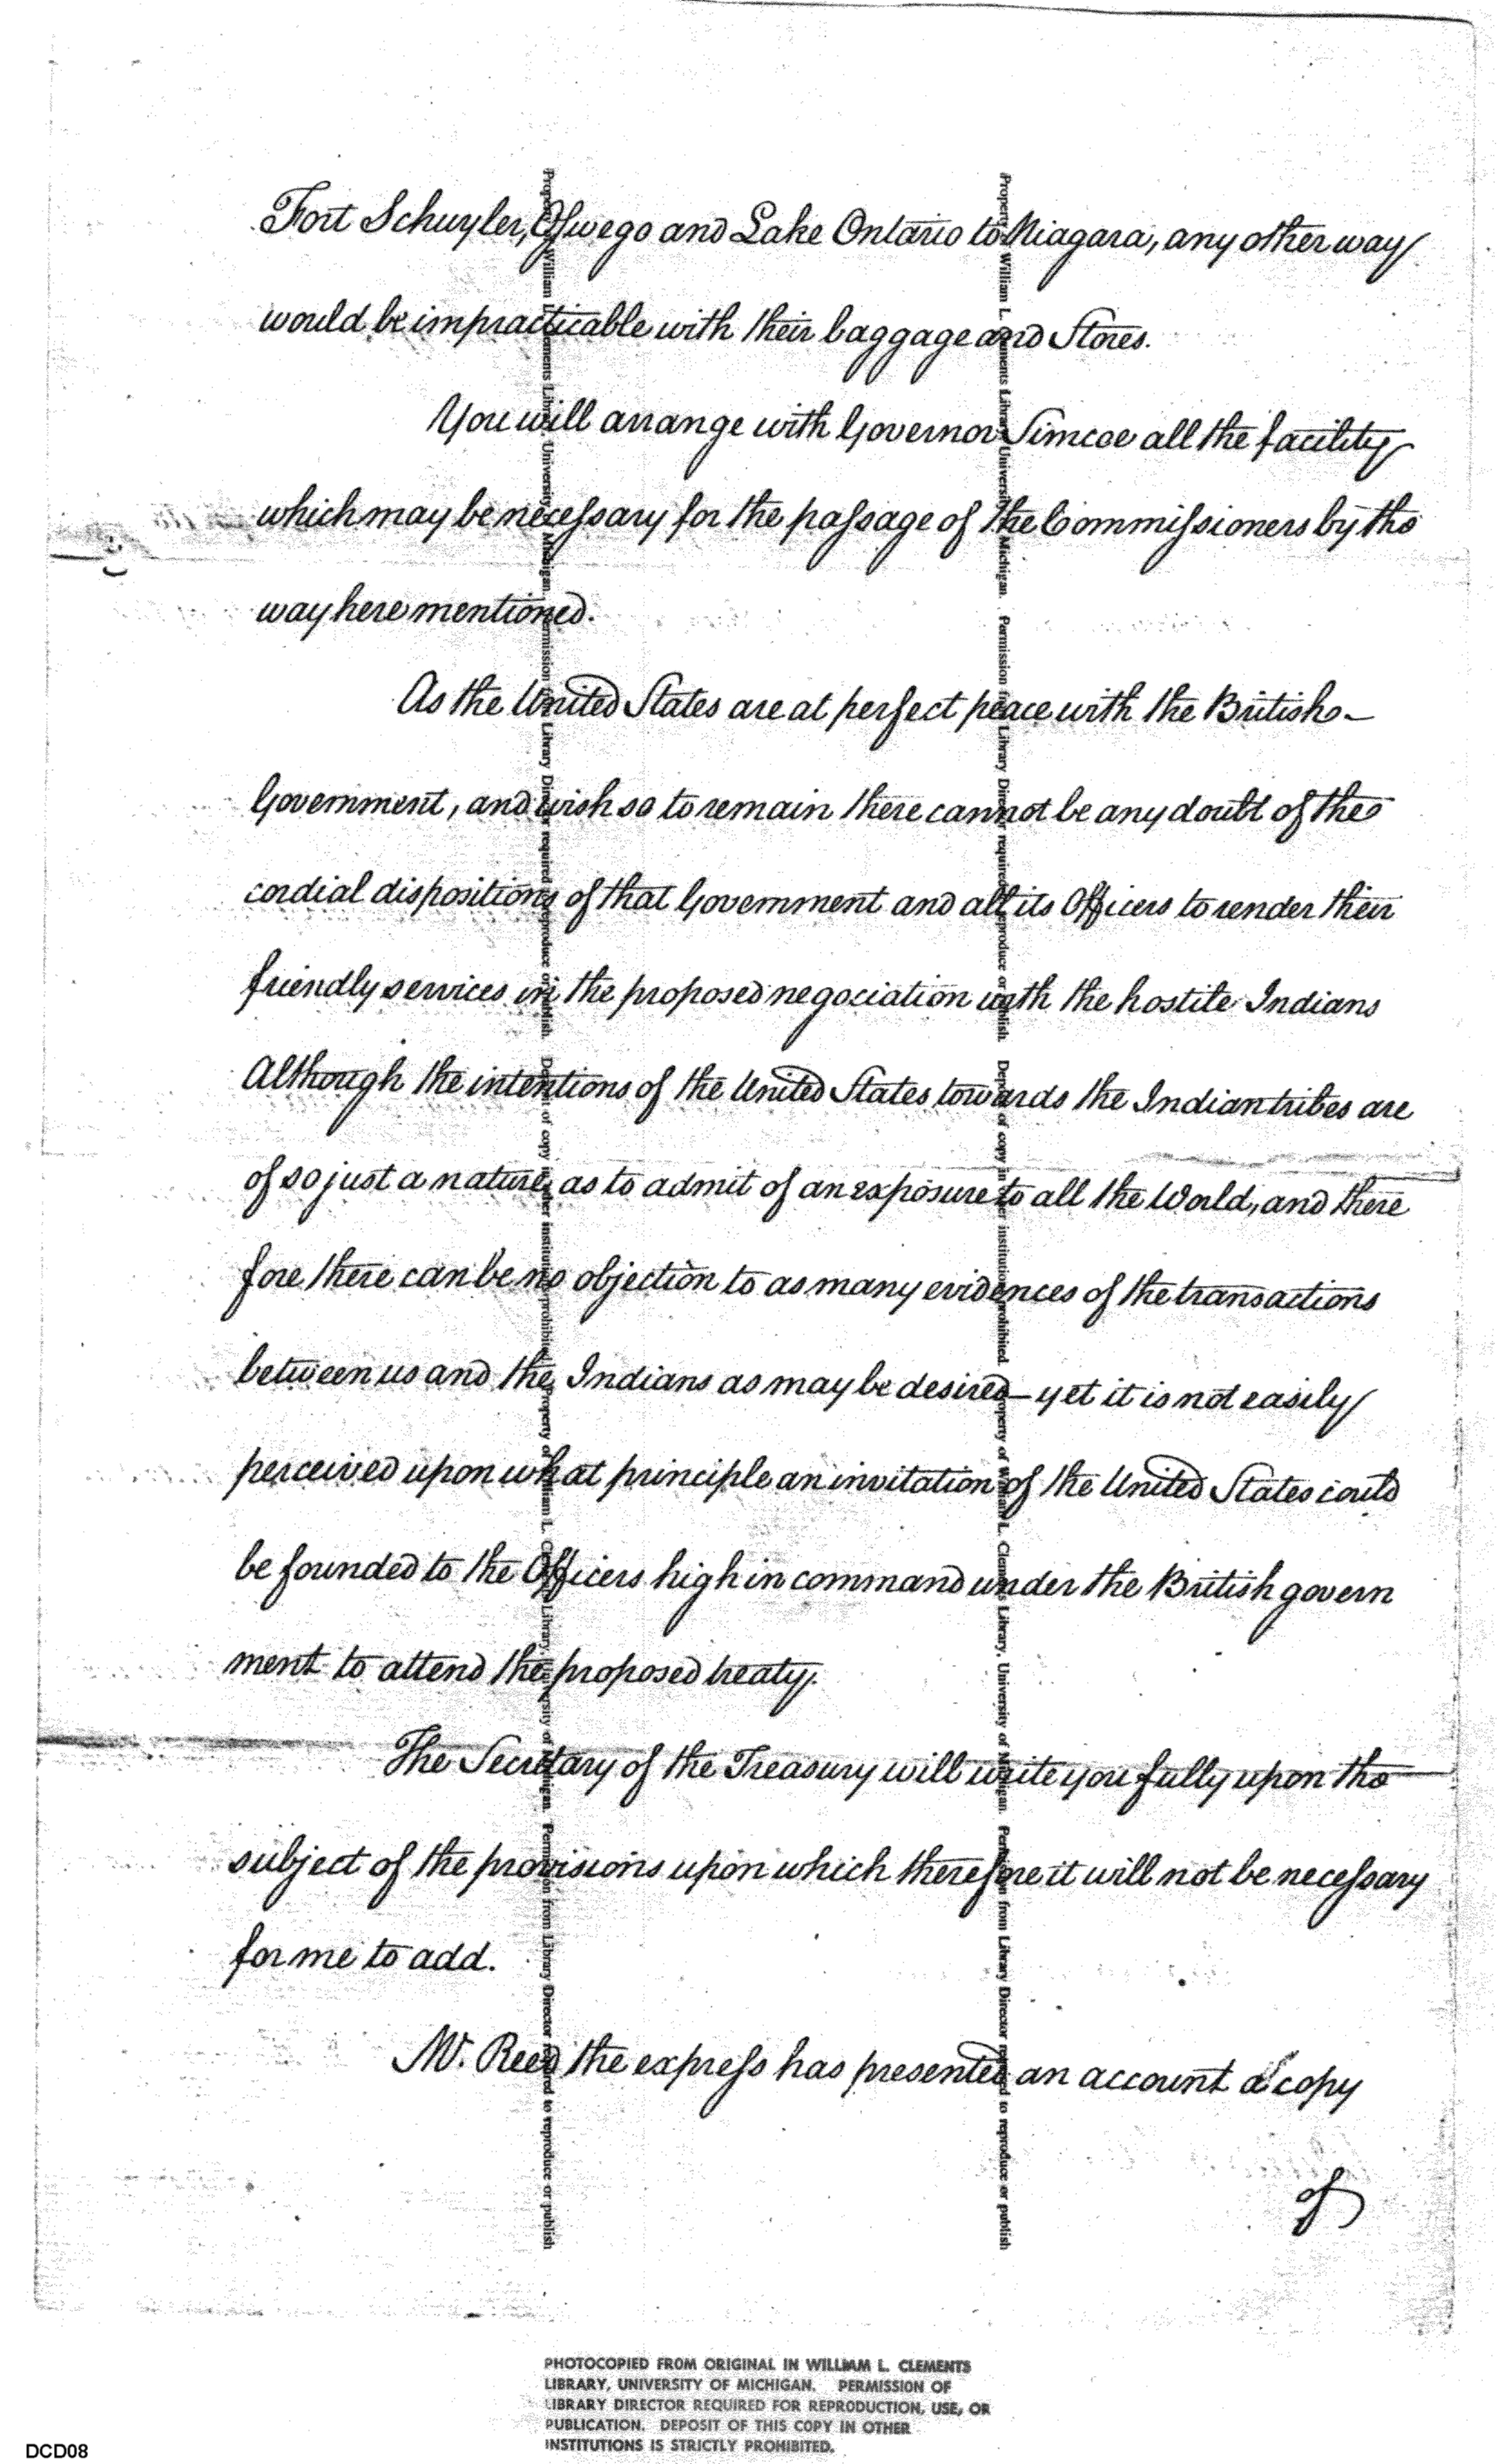 Fort Schuyler, Oswego and Lake Ontario to Niagara, any other way
would be impracticable with their baggage and Stores.
You will arrange with Governor Simcoe all the facility
which may be necessary for the passage of the Commissioners by the
way here mentioned.
As the United States are at perfect peace with the British
Government, and wish so to remain there cannot be any doubt of the
cordial dispositions of that Government and all its Officers to render their
friendly services in the proposed negociation with the hostile Indians
Although the intentions of the United States towards the Indian tribes are
of so just a nature, as to admit of an exposure to all the World, and there
fore there can be no objection to as many evidences of the transactions
between us and the Indians as may be desired — yet it is not easily
perceived upon what principle an invitation of the United States could
be founded to the Officers high in command under the British govern
ment to attend the proposed treaty.
The Secretary of the Treasury will write you fully upon the
subject of the provisions upon which therefore it will not be necessary
for me to add.
Mr. Reed the express has presented an account a copy
of
Property of William L. Clements Library, University of Michigan. Permission from Library Director required to reproduce or publish. Deposit of copy in other institutions prohibited. Property of William L. Clements Library, University of Michigan. Permission from Library Director required to reproduce or publish
Property of William L. Clements Library, University of Michigan. Permission from Library Director required to reproduce or publish. Deposit of copy in other institutions prohibited. Property of William L. Clements Library, University of Michigan. Permission from Library Director required to reproduce or publish
PHOTOCOPIED FROM ORIGINAL IN WILLIAM L. CLEMENTS
LIBRARY, UNIVERSITY OF MICHIGAN. PERMISSION OF
LIBRARY DIRECTOR REQUIRED FOR REPRODUCTION, USE, OR
PUBLICATION. DEPOSIT OF THIS COPY IN OTHER
INSTITUTIONS IS STRICTLY PROHIBITED.
DCD08